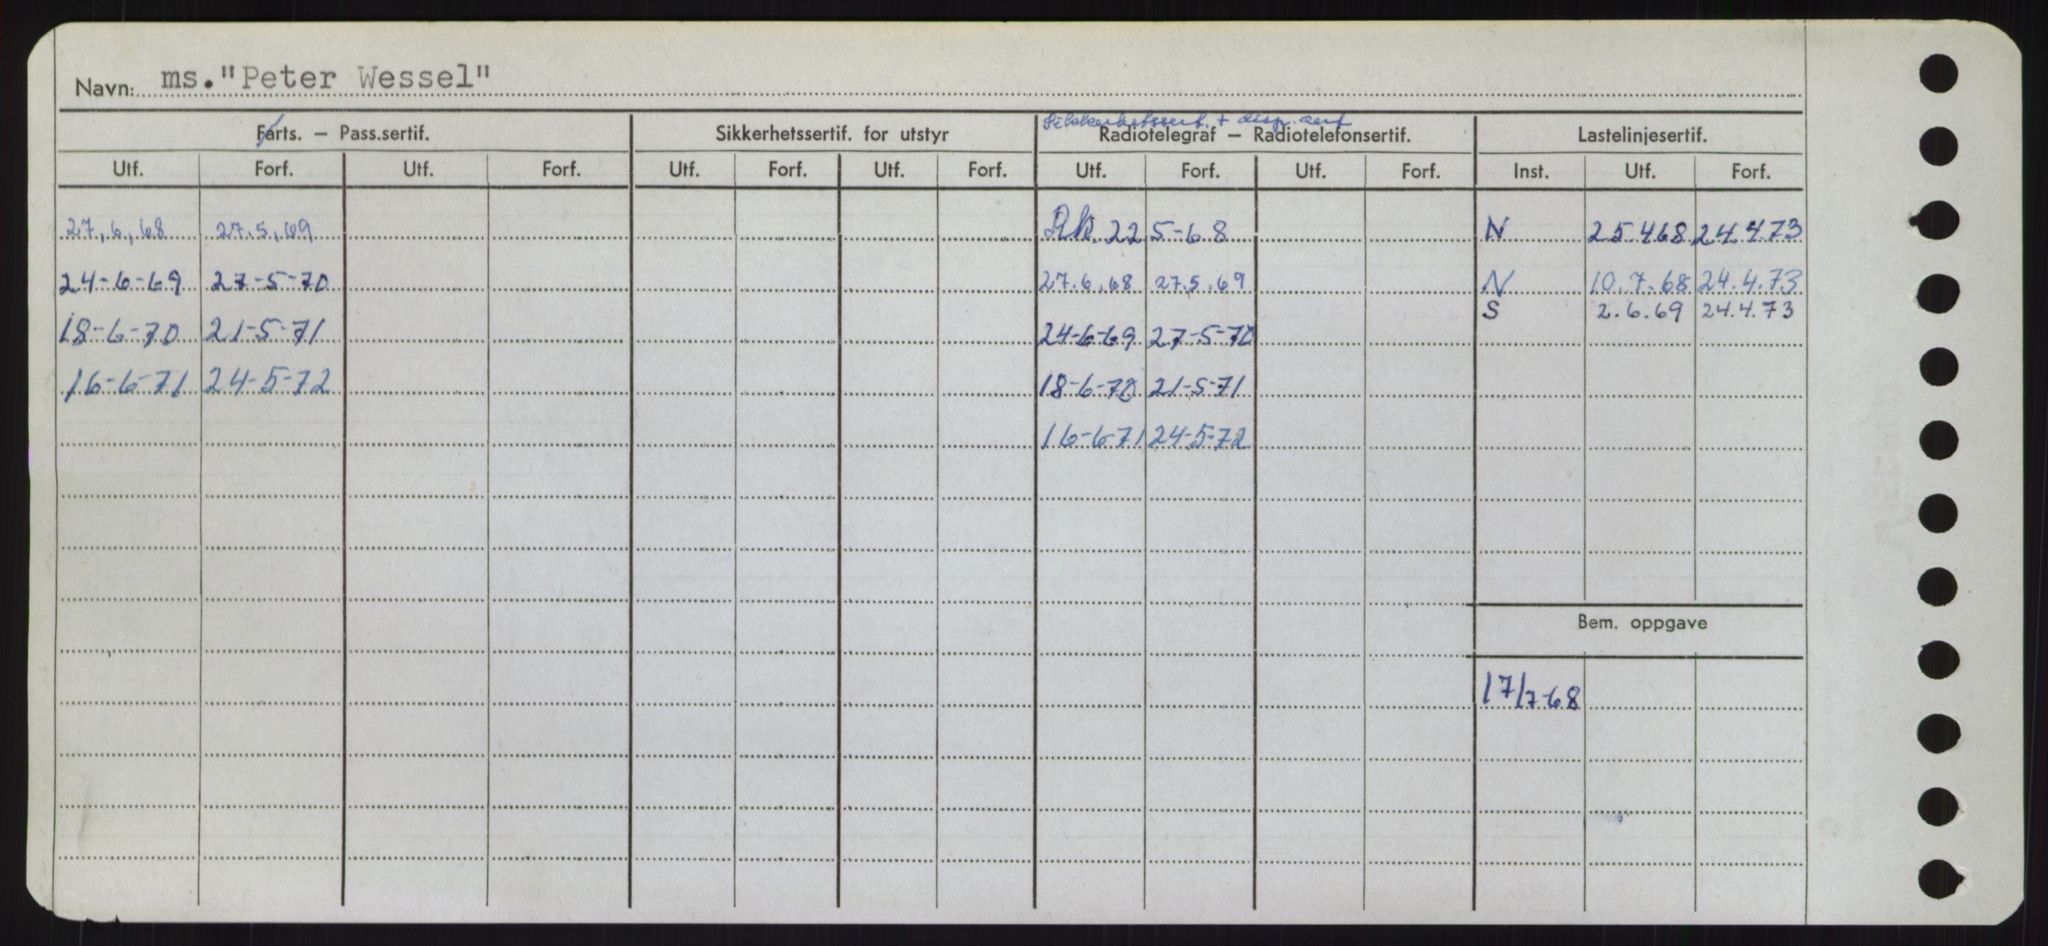 Navn: ms. "Peter Wessel"
Sikkerhetssert. + disp. sert
Farts. – Pass.sertif. Sikkerhetssertif. for utstyr Radiotelegraf – Radiotelefonsertif. Lastelinjesertif.
Utf. Forf. Utf. Forf. Utf. Forf. Utf. Forf. Utf. Forf. Utf. Forf. Inst. Utf. Forf.
27.6.68 27.5.69 22 5-68 N 25.4.68 24.4.73
24-6-69 27-5-70 27.6.68 27.5.69 N 10.7.68 24.4.73
S 2.6.69 24.4.73
18-6-70 21-5-71 24-6-69 27-5-70
16-6-71 24-5-72 18-6-70 21-5-71
16-6-71 24-5-72
Bem. oppgave
17/7-68